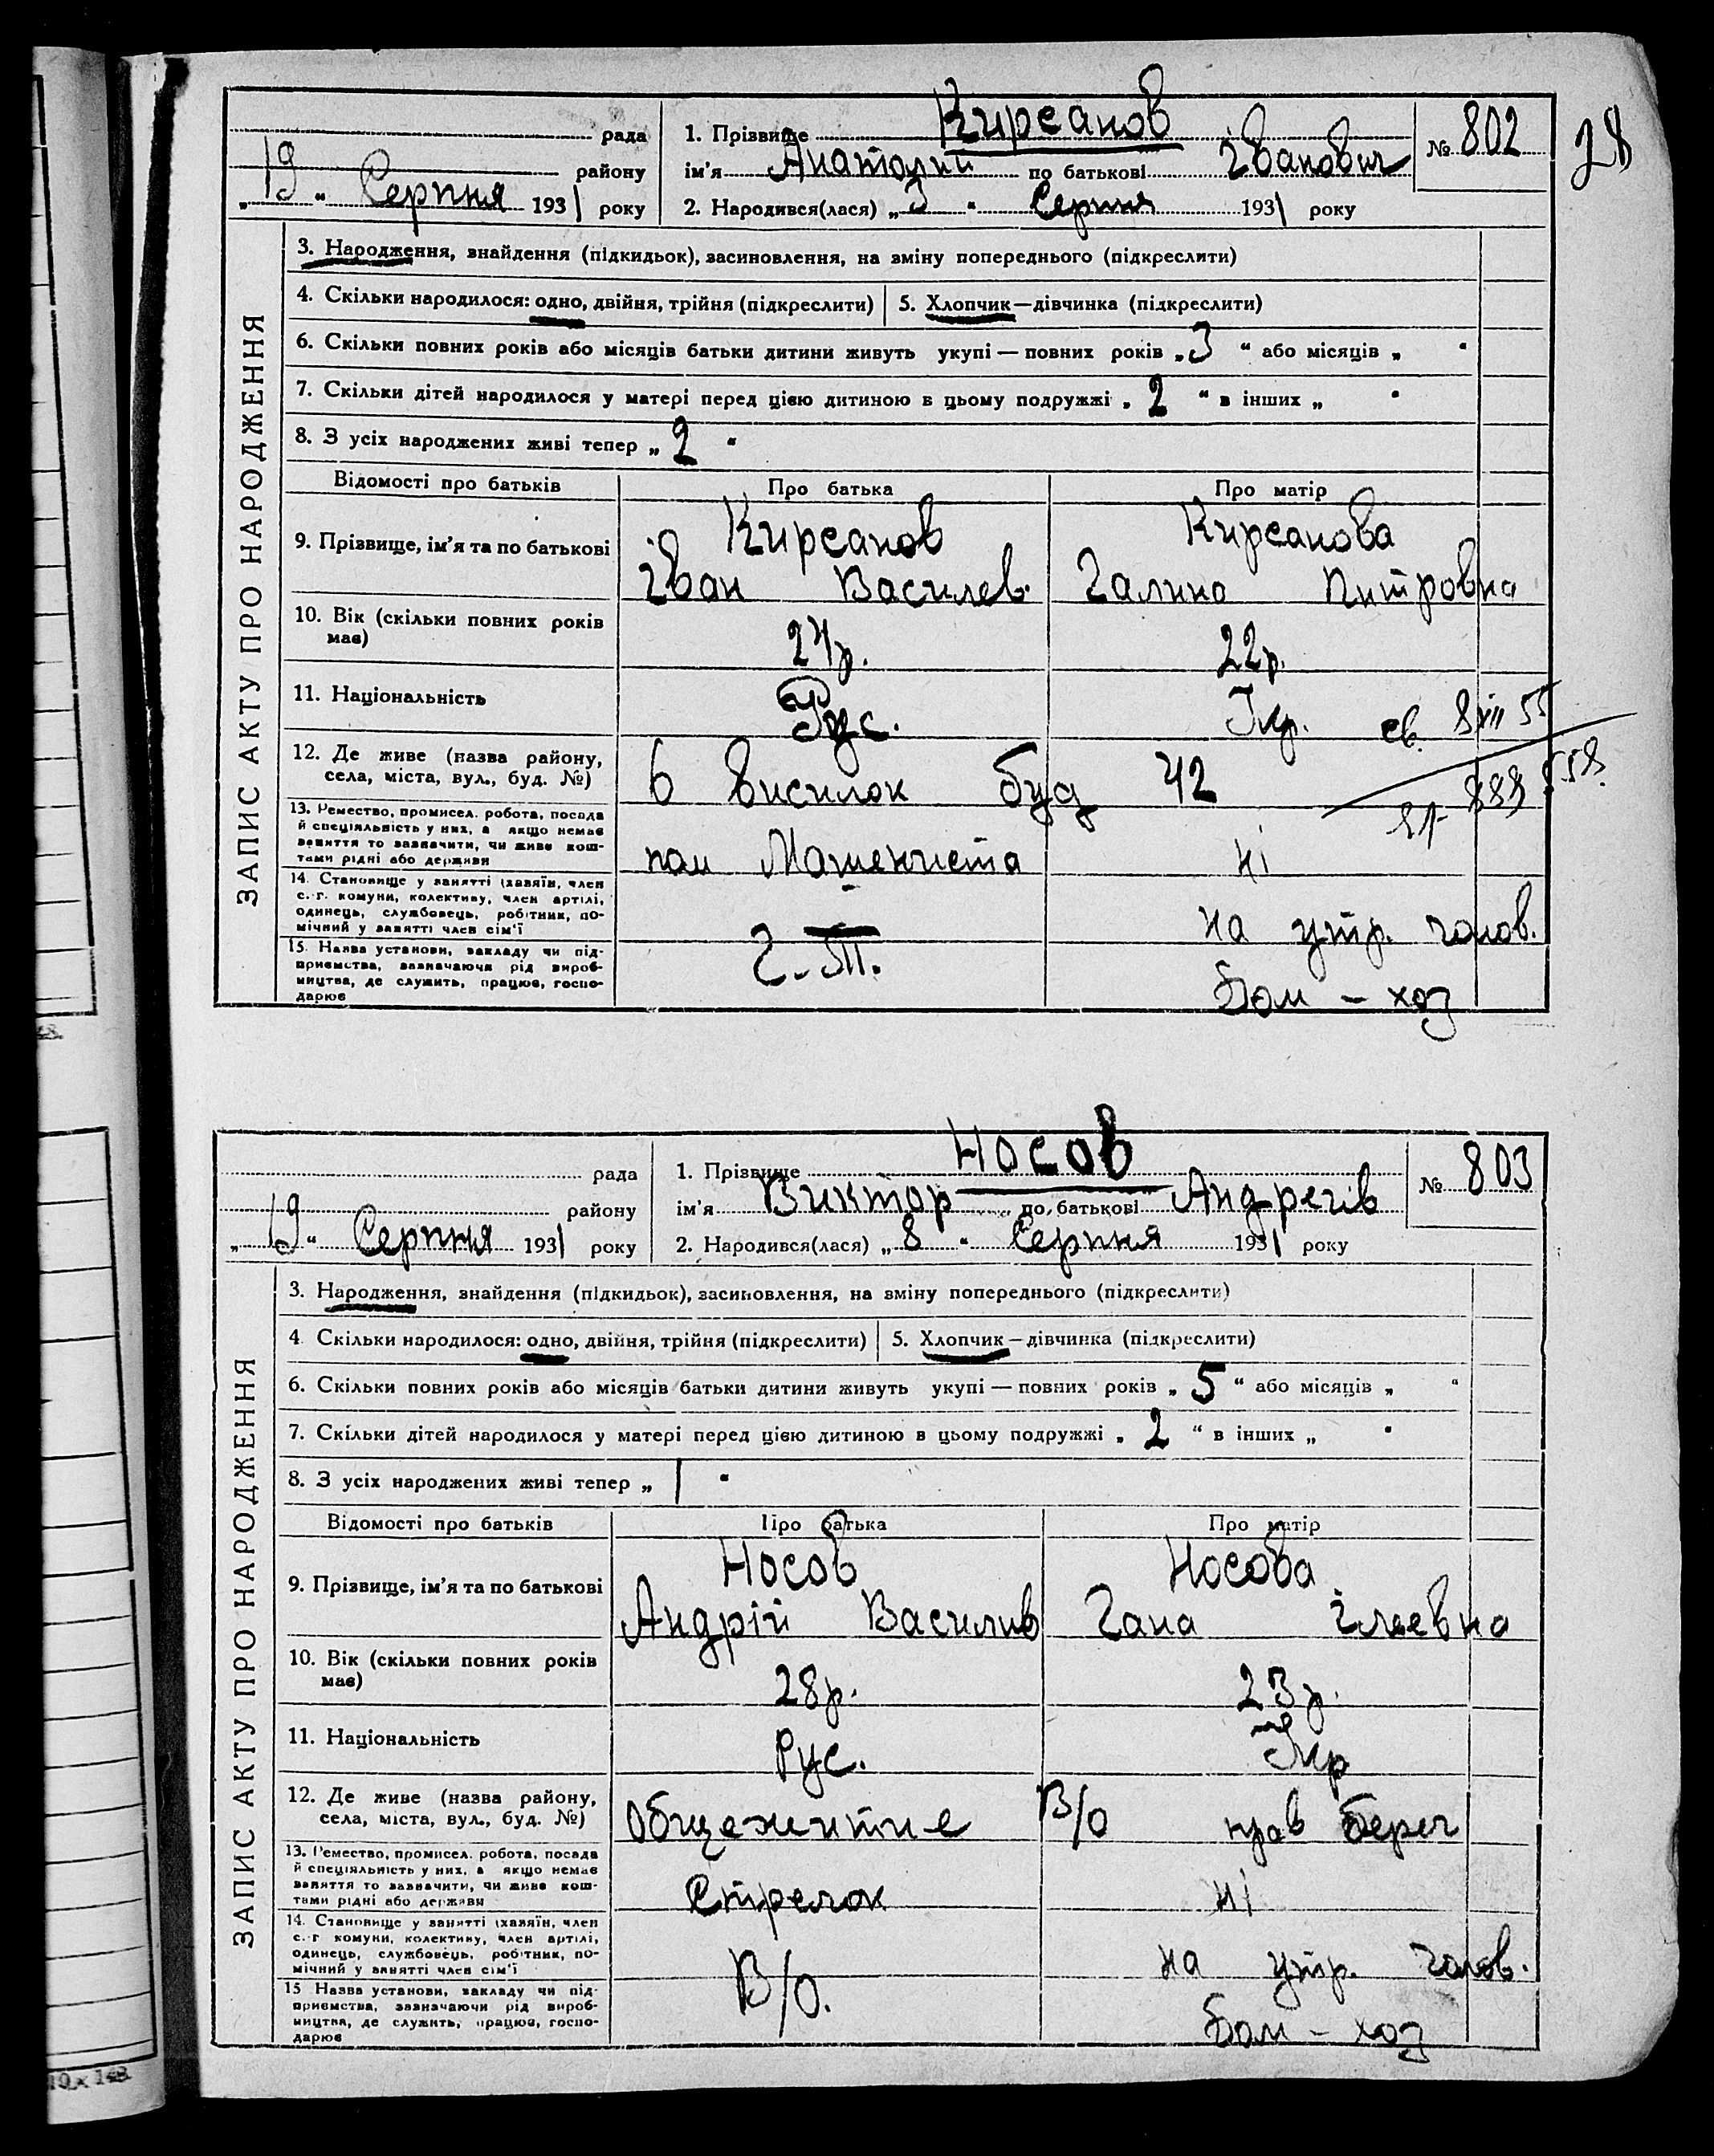 28
рада
19 району
„ “ Серпня 1931 року
1. Прізвище Кирсанов
ім'я Анатолий по батькові Іванович
2. Народився(лася) „3“ Серпня 1931 року
№ 802
ЗАПИС АКТУ ПРО НАРОДЖЕННЯ
3. Народження, знайдення (підкидьок), засиновлення, на зміну попереднього (підкреслити)
4. Скільки народилося: одно, двійня, трійня (підкреслити)
5. Хлопчик—дівчинка (підкреслити)
6. Скільки повних років або місяців батьки дитини живуть укупі — повних років „3“ або місяців „ “
7. Скільки дітей народилося у матері перед цією дитиною в цьому подружжі „2“ в інших „ “
8. З усіх народжених живі тепер „2“
Відомості про батьків Про батька Про матір
9. Прізвище, ім'я та по батькові
Кирсанов
Іван Василев.
Кирсанова
Галина Питровна
10. Вік (скільки повних років має)
24р. 22р.
11. Національність
Рус. Укр.
св. 8 XII 55
12. Де живе (назва району, села, міста, вул., буд. №)
6 висилок буд 42
13. Ремество, промисел, робота, посада
й спеціяльність у них, а якщо немає
заняття то зазначити, чи живе кош-
тами рідні або держави
пом Машениста ні
14. Становище у занятті (хазяїн, член
с.-г. комуни, колективу, член артілі,
одинець, службовець, робітник, по-
мічний у занятті член сім'ї
на утр. чолов.
15. Назва установи, закладу чи під-
приємства, зазначаючи рід вироб-
ництва, де служить, працює, госпо-
дарює
Дом – хоз
рада
19 району
„ “ Серпня 1931 року
1. Прізвище Носов
ім'я Виктор по батькові Андреів
2. Народився(лася) „8“ Серпня 1931 року
№ 803
ЗАПИС АКТУ ПРО НАРОДЖЕННЯ
3. Народження, знайдення (підкидьок), засиновлення, на зміну попереднього (підкреслити)
4 Скільки народилося: одно, двійня, трійня (підкреслити)
5. Хлопчик—дівчинка (підкреслити)
6. Скільки повних років або місяців батьки дитини живуть укупі — повних років „5“ або місяців „ “
7. Скільки дітей народилося у матері перед цією дитиною в цьому подружжі „2“ в інших „ “
8. З усіх народжених живі тепер „1“
Відомості про батьків Про батька Про матір
9. Прізвище, ім'я та по батькові
Носов
Андрій Василив
Носова
Гана Ілеевна
10. Вік (скільки повних років має)
28р. 23р.
11. Національність
Рус. Укр
12. Де живе (назва району, села, міста, вул., буд. №)
Общежитие В/О прав берег
13. Ремество, промисел, робота, посада
й спеціяльність у них, а якщо немає
заняття то зазначити, чи живе кош-
тами рідні або держави
Стрелок ні
14. Становище у занятті (хазяїн, член
с.-г комуни, колективу, член артілі,
одинець, службовець, робітник, по-
мічний у занятті член сім'ї
на утр. чолов.
15 Назва установи, закладу чи під-
приємства, зазначаючи рід вироб-
ництва, де служить, працює, госпо-
дарює
В/О. Дом – хоз